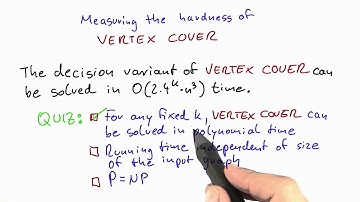 Measuring the hardness of
VERTEX COVER
The decision variant of VERTEX COVER can
be solved in O(2.4ᵏ·n³) time.
QUIZ: ☑ For any fixed k, VERTEX COVER can
be solved in polynomial time
☐ Running time independent of size
of the input graph
☐ P=NP